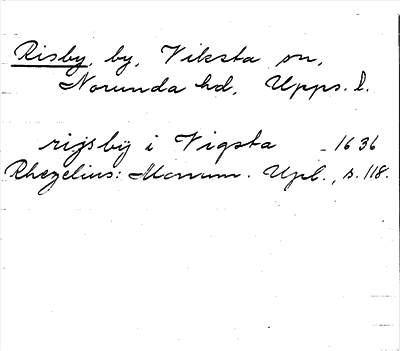 Risby, by, Viksta sn,
Norunda hd, Upps. l.
rijsbÿ i Vigsta - 1636
Rhezelius: Monum. Upl., s. 118.